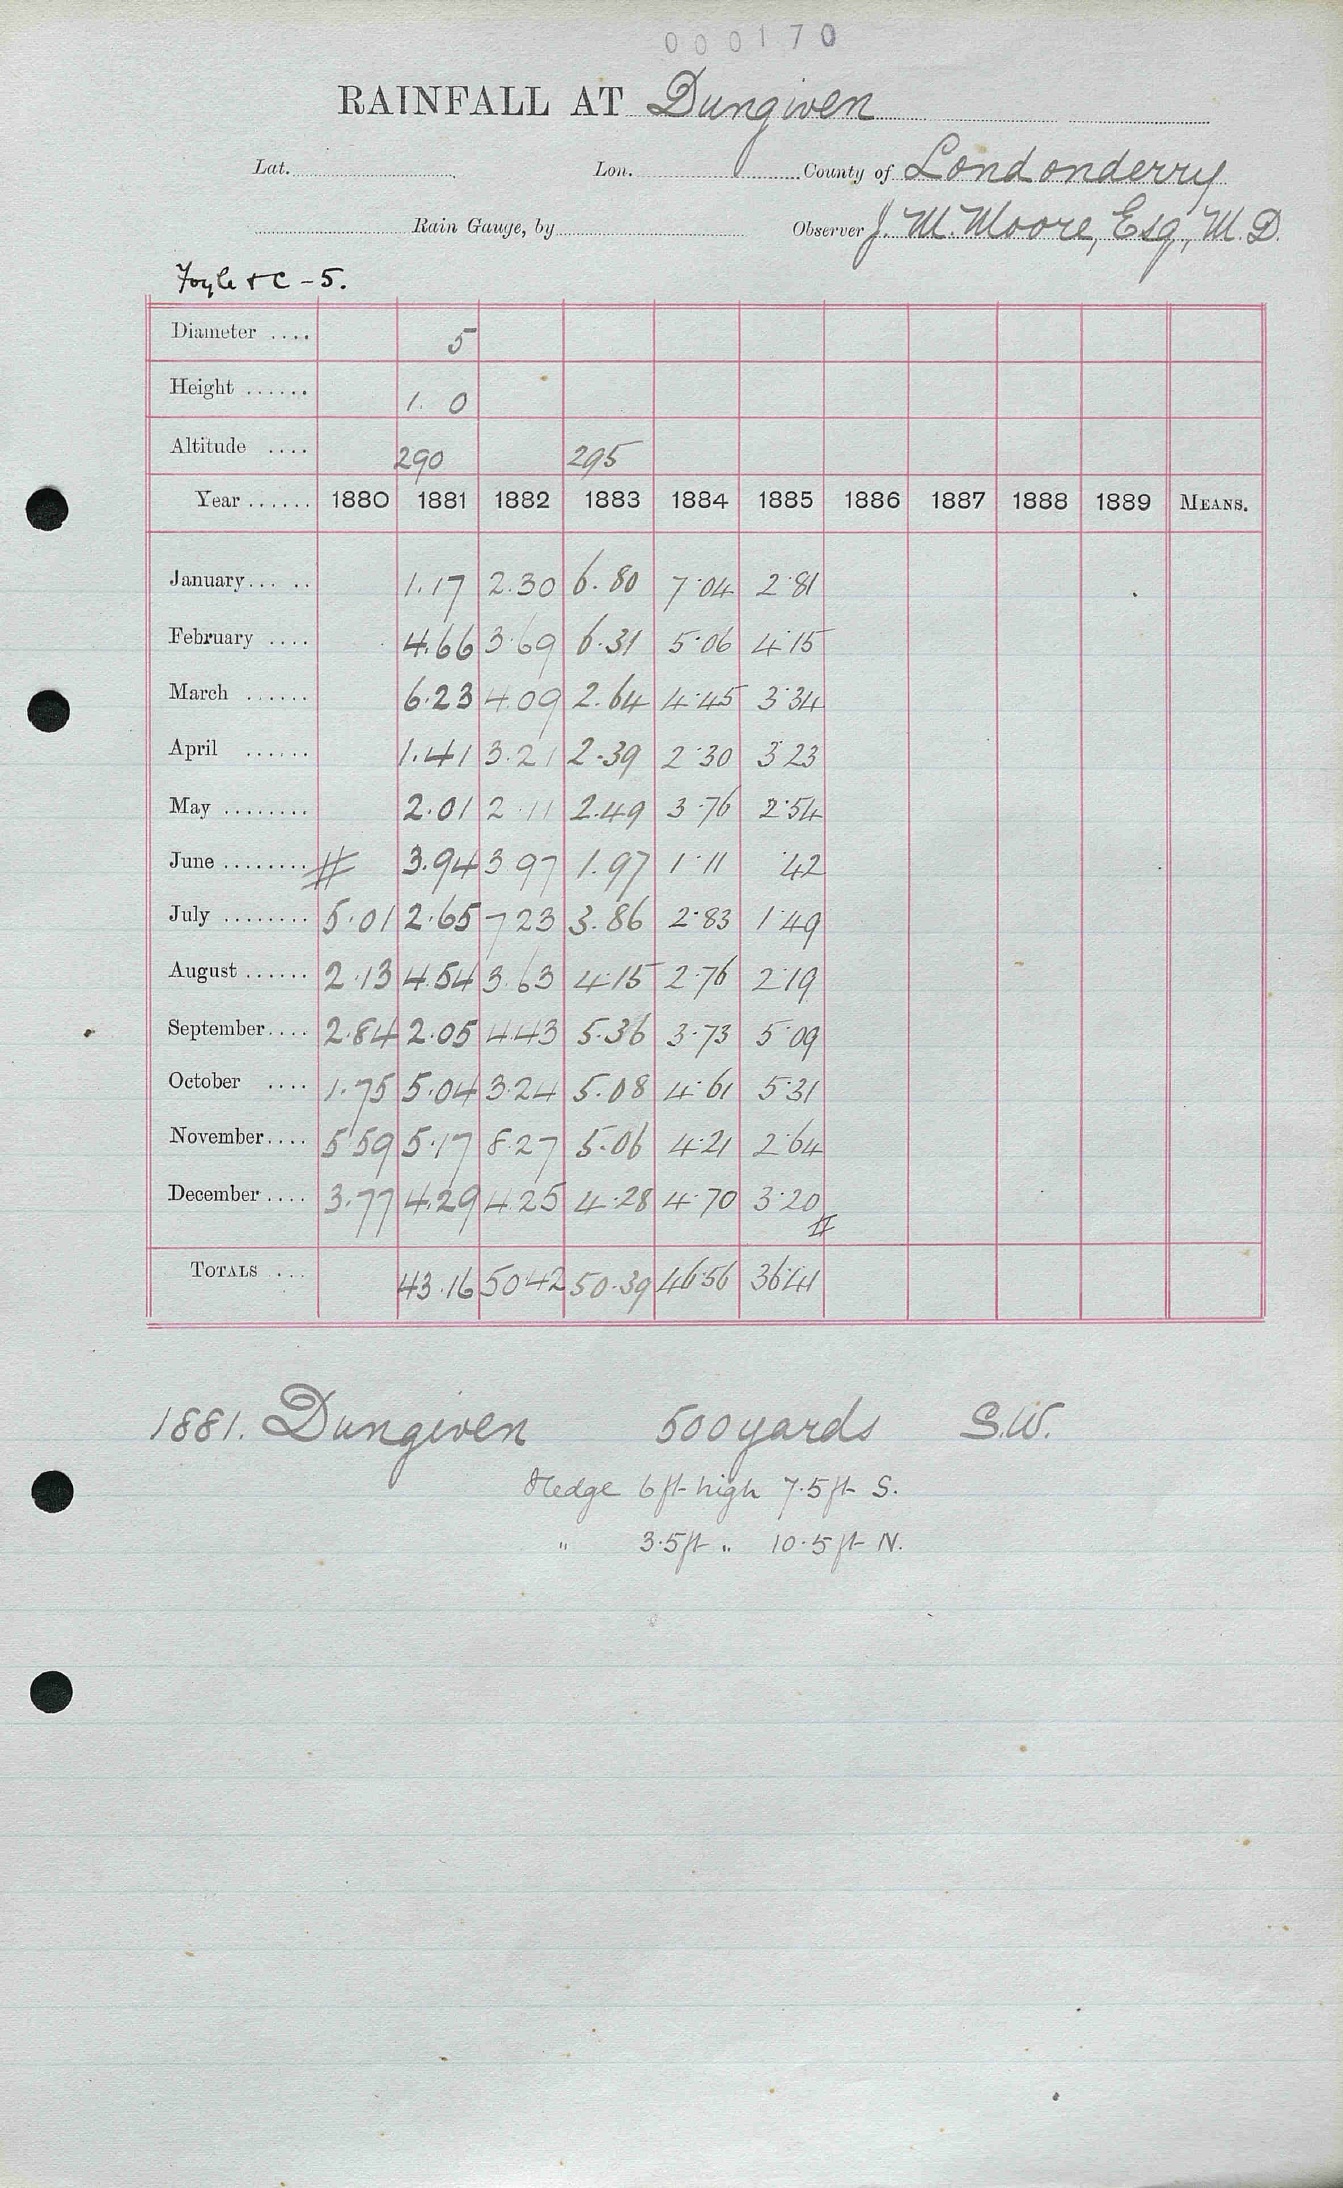 000170
RAINFALL AT Dungiven
Lat. Lon. County of Londonderry
Rain Gauge, by Observer J. M. Moore, Esq, M.D.
Foyle & C - 5.
Diameter .... 5
Height ...... 1. 0
Altitude .... 290 295
Year ...... 1880 1881 1882 1883 1884 1885 1886 1887 1888 1889 MEANS.
January... .. 1.17 2.30 6.80 7.04 2.81
February .... 4.66 3.69 6.31 5.06 4.15
March ...... 6.23 4.09 2.64 4.45 3.34
April ...... 1.41 3.21 2.39 2.30 3.23
May ........ 2.01 2.11 2.49 3.76 2.54
June ........ # 3.94 3.97 1.97 1.11 .42
July ........ 5.01 2.65 7.23 3.86 2.83 1.49
August ...... 2.13 4.54 3.63 4.15 2.76 2.19
September.... 2.84 2.05 4.43 5.36 3.73 5.09
October .... 1.75 5.04 3.24 5.08 4.61 5.31
November.... 5.59 5.17 8.27 5.06 4.21 2.64
December .... 3.77 4.29 4.25 4.28 4.70 3.20 #
TOTALS ... 43.16 50.42 50.39 46.56 36.41
1881. Dungiven 500 yards S.W.
Hedge 6 ft high 7.5 ft S.
" 3.5 ft " 10.5 ft N.